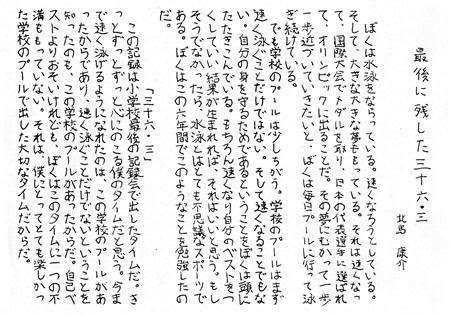 最後に残した三十六・三
北島 康介
ぼくは水泳をならっている。速くなろうとしている。
そして、大きな大きな夢をもっている。それは速くなっ
て、国際大会でメダルを取り、日本の代表選手に選ばれ
て、オリンピックに出ることだ。その夢にむかって一歩
一歩近づいていきたいと、ぼくは毎日プールに行って泳
ぎ続けている。
でも学校のプールは少しちがう。学校のプールはまず
速く泳ぐことだけではない。そして速くなることでもな
い。自分の身を守るためであるということをぼくは頭に
たたきこんでいる。もちろん速くなり自分のベストをつ
くしていい結果が生まれれば、それはいいと思う。もし
そうでなかったら、水泳とはとても不思議なスポーツで
ある。ぼくはこの六年間でこのようなことを勉強したの
だ。
「三十六・三」
この記録は小学校最後の記録会で出したタイムだ。き
っとずっとずっと心にのこる僕のタイムだと思う。今ま
で速く泳げるようになれたのは、この学校のプールがあ
ったからであり、速く泳ぐことだけでないということを
知ったのも、この学校のプールがあったからだ。自己ベ
ストよりおそいけれども、ぼくはこのタイムに一つの不
満ももっていない。それは、僕にとってとても楽しかっ
た学校のプールで出した大切なタイムだからだ。